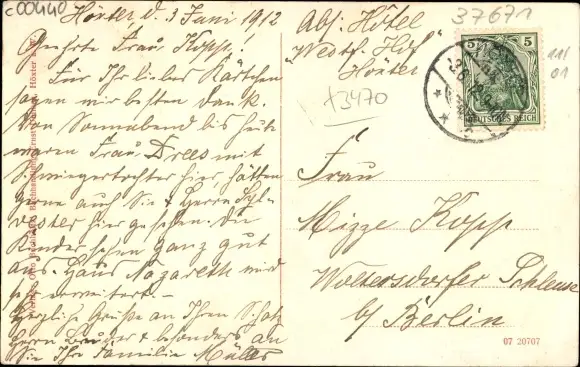 c00440
Höxter, d. 3 Juni 1912
Geehrte Frau Kopp!
Für Ihr liebes Kärtchen
sagen wir besten Dank.
Von Sonnabend bis heute
waren Frau Drees mit
Schwiegertochter hier, hätten
gerne auch Sie & Herrn Syl-
vester hier gesehen. Die
Kinder sehen ganz gut
aus. Haus Nazareth wird
sehr erweitert. –
Herzliche Grüße an Ihren Schatz
Herrn Bruder & besonders an
Sie Ihre Familie Müller
Abs: Hôtel
"Westf. Hof"
Höxter
37671
111
01
x3470
5 5
DEUTSCHES REICH
Frau
Mizze Kopp
Woltersdorfer Schleuse
b/ Berlin
07 20707